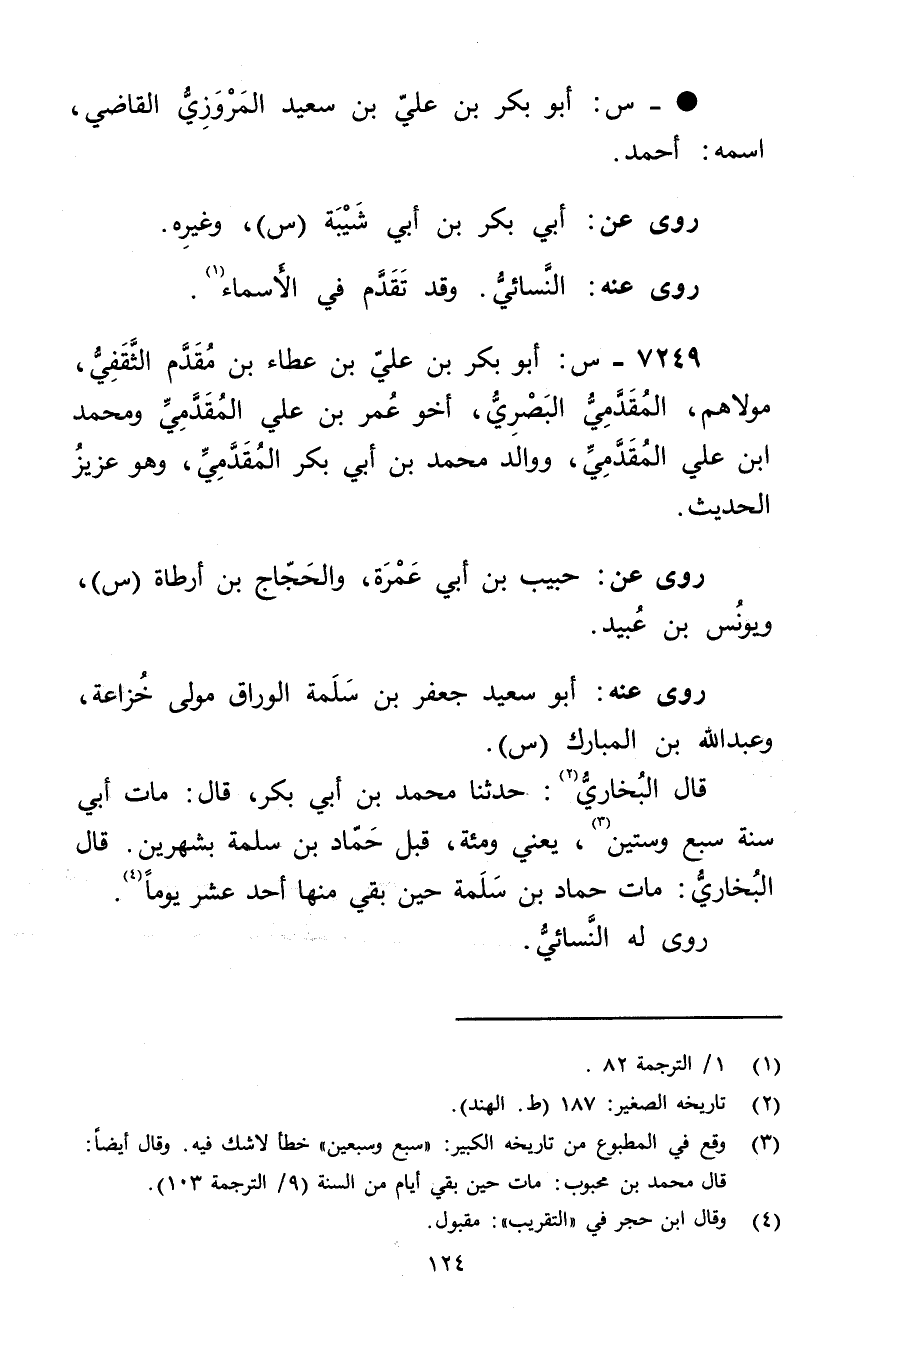 ● ـ س: أبو بكر بن عليّ بن سعيد المَرْوَزِيُّ القاضي،
اسمه: أحمد.
روى عن: أبي بكر بن أبي شَيْبَة (س)، وغيرِه.
روى عنه: النَّسائيُّ. وقد تَقَدَّم في الأَسماء(١).
٧٢٤٩ ـ س: أبو بكر بن عليّ بن عطاء بن مُقَدَّم الثَّقَفِيُّ،
مولاهم، المُقَدَّمِيُّ البَصْرِيُّ، أخو عُمر بن علي المُقَدَّمِيِّ ومحمد
ابن علي المُقَدَّمِيِّ، ووالد محمد بن أبي بكر المُقَدَّمِيِّ، وهو عزيزُ
الحديث.
روى عن: حبيب بن أبي عَمْرَة، والحَجّاج بن أرطاة (س)،
ويونُس بن عُبيد.
روى عنه: أبو سعيد جعفر بن سَلَمة الوراق مولى خُزاعة،
وعبدالله بن المبارك (س).
قال البُخاريُّ(٢): حدثنا محمد بن أبي بكر، قال: مات أبي
سنة سبع وستين(٣)، يعني ومئة، قبل حَمّاد بن سلمة بشهرين. قال
البُخاريُّ: مات حماد بن سَلَمة حين بقي منها أحد عشر يوماً(٤).
روى له النَّسائيُّ.
(١) ١/ الترجمة ٨٢ .
(٢) تاريخه الصغير: ١٨٧ (ط. الهند).
(٣) وقع في المطبوع من تاريخه الكبير: «سبع وسبعين» خطأ لاشك فيه. وقال أيضاً:
قال محمد بن محبوب: مات حين بقي أيام من السنة (٩/ الترجمة ١٠٣).
(٤) وقال ابن حجر في «التقريب»: مقبول.
١٢٤